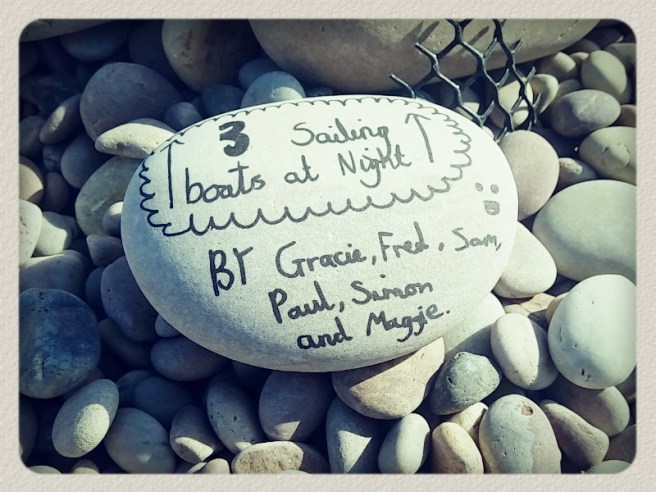 3 Sailing
boats at Night
BY Gracie, Fred, Sam,
Paul, Simon
and Maggie.